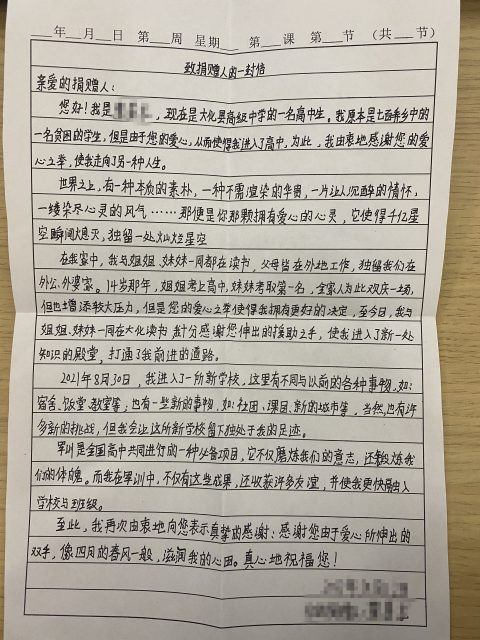 ___年___月___日 第___周 星期___ 第___课 第___节 (共___节)
致捐赠人的一封信
亲爱的捐赠人:
您好!我是，现在是大化县高级中学的一名高中生。我原本是七百弄乡中的
一名贫困的学生，但是由于您的爱心，从而使得我进入了高中，为此，我由衷地感谢您的爱
心之举，使我走向了另一种人生。
世界之上，有一种本质的素朴，一种不需渲染的华贵，一片让人沉醉的情怀，
一缕染尽心灵的风气……那便是你那颗拥有爱心的心灵，它使得千亿星
空瞬间熄灭，独留一处灿烂星空
在我家中，我与姐姐、妹妹一同都在读书，父母皆在外地工作，独留我们在
外公、外婆家。14岁那年，姐姐考上高中，妹妹考取第一名，全家人为此欢庆一场，
但也增添较大压力，但是您的爱心之举使得我拥有更好的决定，至今日，我与
姐姐、妹妹一同在大化读书，十分感谢您伸出的援助之手，使我进入了新一处
知识的殿堂，打通了我前进的道路。
2021年8月30日，我进入了一所新学校，这里有不同与以前的各种事物，如:
宿舍、饭堂、教室等;也有一些新的事物，如:社团、课团、新的城市等，当然，也有许
多新的挑战，但我会让这所新学校留下独处于我的足迹。
军训是全国高中共同进行的一种必备项目，它不仅磨炼我们的意志，还锻炼我
们的体魄。而我在军训中，不仅有这些成果，还收获许多友谊，并使我更快融入
学校与班级。
至此，我再次由衷地向您表示真挚的感谢:感谢您由于爱心所伸出的
双手，像四月的春风一般，滋润我的心田。真心地祝福您!